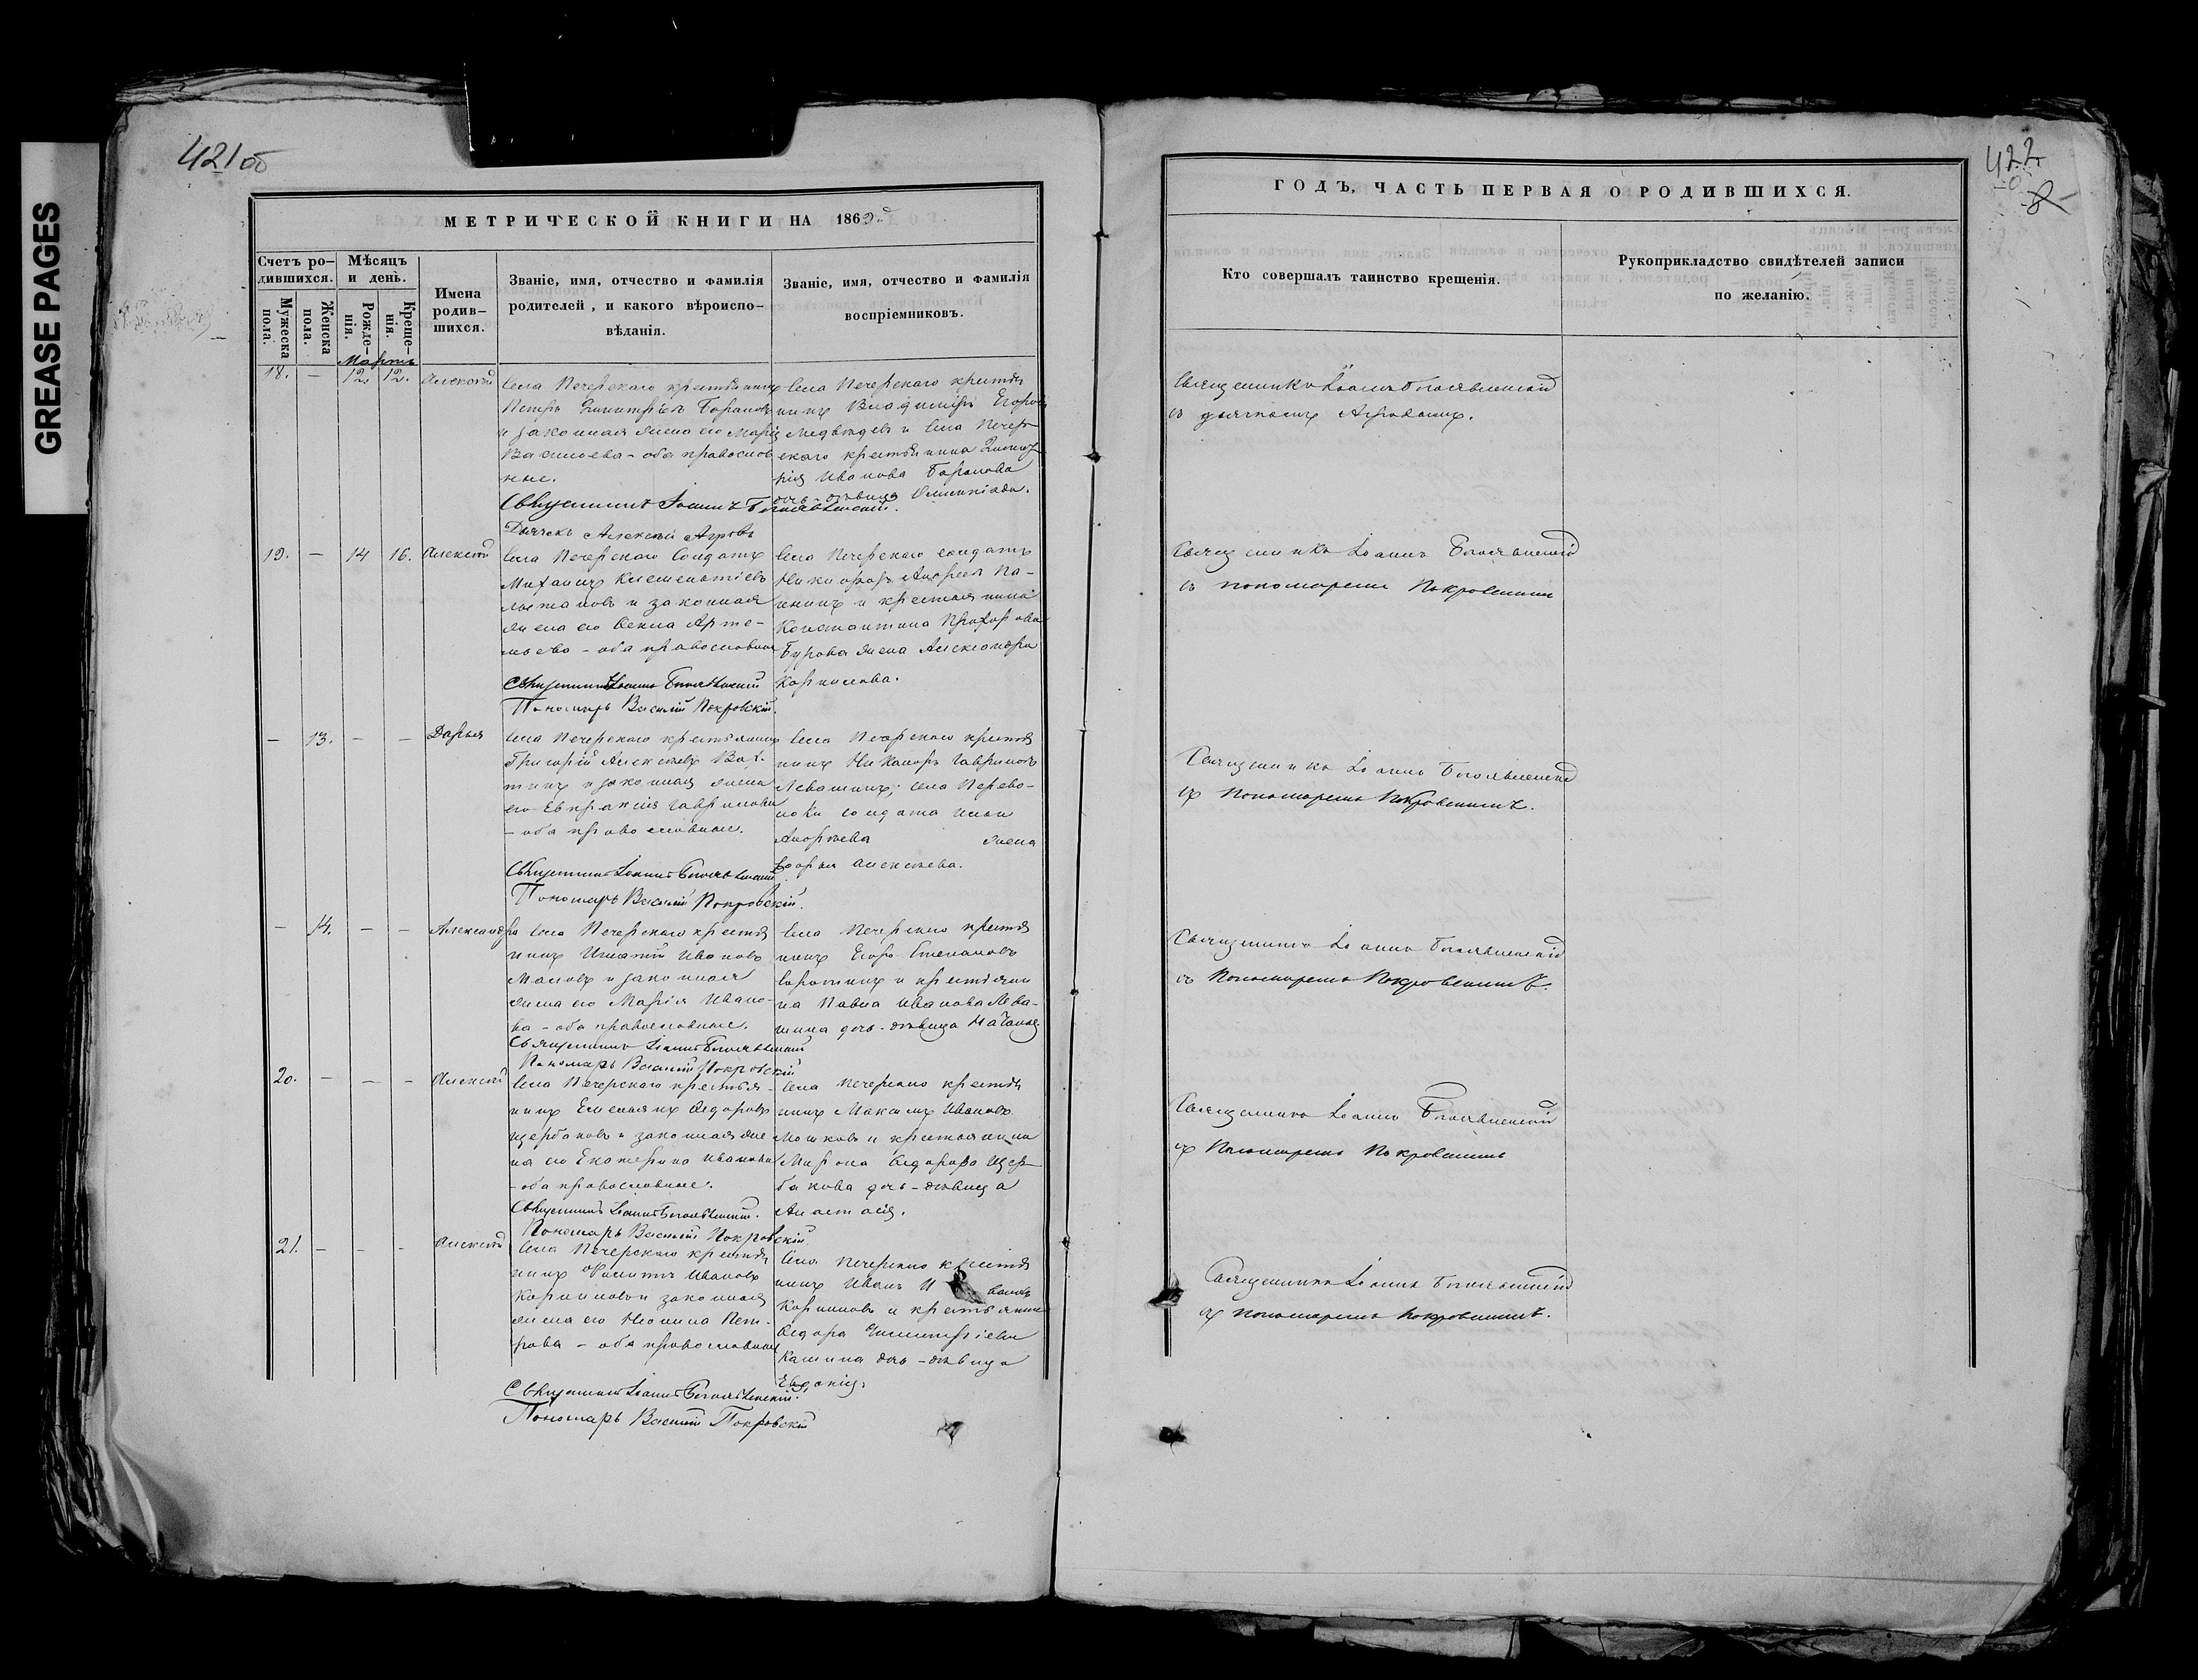 GREASE PAGES
421об
МЕТРИЧЕСКОЙ КНИГИ НА 1869й
Счетъ ро-
дившихся.
Мужеска
пола.
Женска
пола.
Мѣсяцъ
и день.
Рожде-
нія.
Креще-
нія.
Имена
родив-
шихся.
Званіе, имя, отчество и фамилія
родителей, и какого вѣроиспо-
вѣданія.
Званіе, имя, отчество и фамилія
воспріемниковъ.
Мартъ
18. — 12. 12. Алексѣй
Села Печерскаго крестьянинъ
Петръ Димитріевъ Барановъ
и законная жена его Марія
Васильева - оба православ
ные.
Священникъ Іоаннъ Богоявленскій.
Дьячекъ Алексѣй Агровъ
Села Печерскаго крестья
нинъ Владиміръ Егоровъ
Медвѣдевъ и села Печер-
скаго крестьянина Димит
рія Иванова Баранова
дочь - дѣвица Олимпіада.
19. — 14 16. Алексѣй
Села Печерскаго Солдатъ
Михаилъ Климентіевъ
и законная
жена его Ѳекла Арте-
мьева - оба православные
Священникъ Іоаннъ Богоявленскій
Пономарь Василій Покровскій.
Села Печерскаго солдатъ
Никифоръ Андреевъ Па-
нинъ и крестьянина
Константина Прохорова
Бурова жена Александра
Корнилова.
— 13. — — Дарья
Села Печерскаго крестьянинъ
Григорій Алексѣевъ Вах-
тинъ и законная жена
его Евпраксія Гаврилова
- оба православные.
Священникъ Іоаннъ Богоявленскій
Пономарь Василій Покровскій.
Села Печерскаго крестья
нинъ Никаноръ Гавриловъ
Левашинъ; села Перево-
локи солдата Ильи
Андреева жена
Дарья Алексѣева.
— 14. — — Александра
Села Печерскаго крестья
нинъ Игнатій Ивановъ
Маловъ и законная
жена его Марія Ивано-
ва - оба православные.
Священникъ Іоаннъ Богоявленскій
Пономарь Василій Покровскій
Села Печерскаго крестья
нинъ Егоръ Степановъ
и крестьяни
на Павла Иванова Лева-
шина дочь - дѣвица Наталья
20. — — — Алексѣй
Села Печерскаго крестья-
нинъ Емельянъ Ѳедоровъ
Щербаковъ и законная же
на его Екатерина Иванова
- оба православные.
Священникъ Іоаннъ Богоявленскій.
Пономарь Василій Покровскій
Села Печерскаго крестья
нинъ Максимъ Ивановъ
и крестьянина
Мирона Ѳедорова Щер-
бакова дочь - дѣвица
Анастасія.
21. — — — Алексѣй
Села Печерскаго крестья
нинъ Филиппъ Ивановъ
Корниловъ и законная
жена его Неонила Пет-
рова - оба православные
Священникъ Іоаннъ Богоявленскій.
Пономарь Василій Покровскій
Села Печерскаго крестья
нинъ Иванъ Ивановъ
Корниловъ и крестьянина
Ѳедора Димитріева
Калинина дочь - дѣвица
422
ГОДЪ, ЧАСТЬ ПЕРВАЯ О РОДИВШИХСЯ.
Кто совершалъ таинство крещенія.
Рукоприкладство свидѣтелей записи
по желанію.
Священникъ Іоаннъ Богоявленскій
съ дьячкомъ Агровымъ.
Священникъ Іоаннъ Богоявленскій
съ пономаремъ Покровскимъ
Священникъ Іоаннъ Богоявленскій
съ Пономаремъ Покровскимъ.
Священникъ Іоаннъ Богоявленскій
съ Пономаремъ Покровскимъ.
Священникъ Іоаннъ Богоявленскій
съ Пономаремъ Покровскимъ
Священникъ Іоаннъ Богоявленскій
съ пономаремъ Покровскимъ.